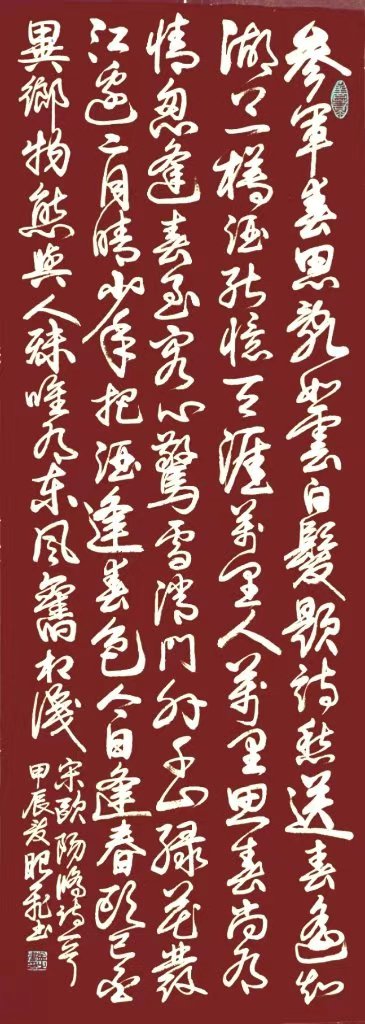 參軍春思亂如雲白髮題詩愁送春遙知
湖上一樽酒能憶天涯萬里人萬里思春尚有
情忽逢春至客心驚雪消門外千山綠花發
江邊二月晴少年把酒逢春色今日逢春頭已白
異鄉物態與人殊唯有東風舊相識
宋歐陽脩詩一首
甲辰夏